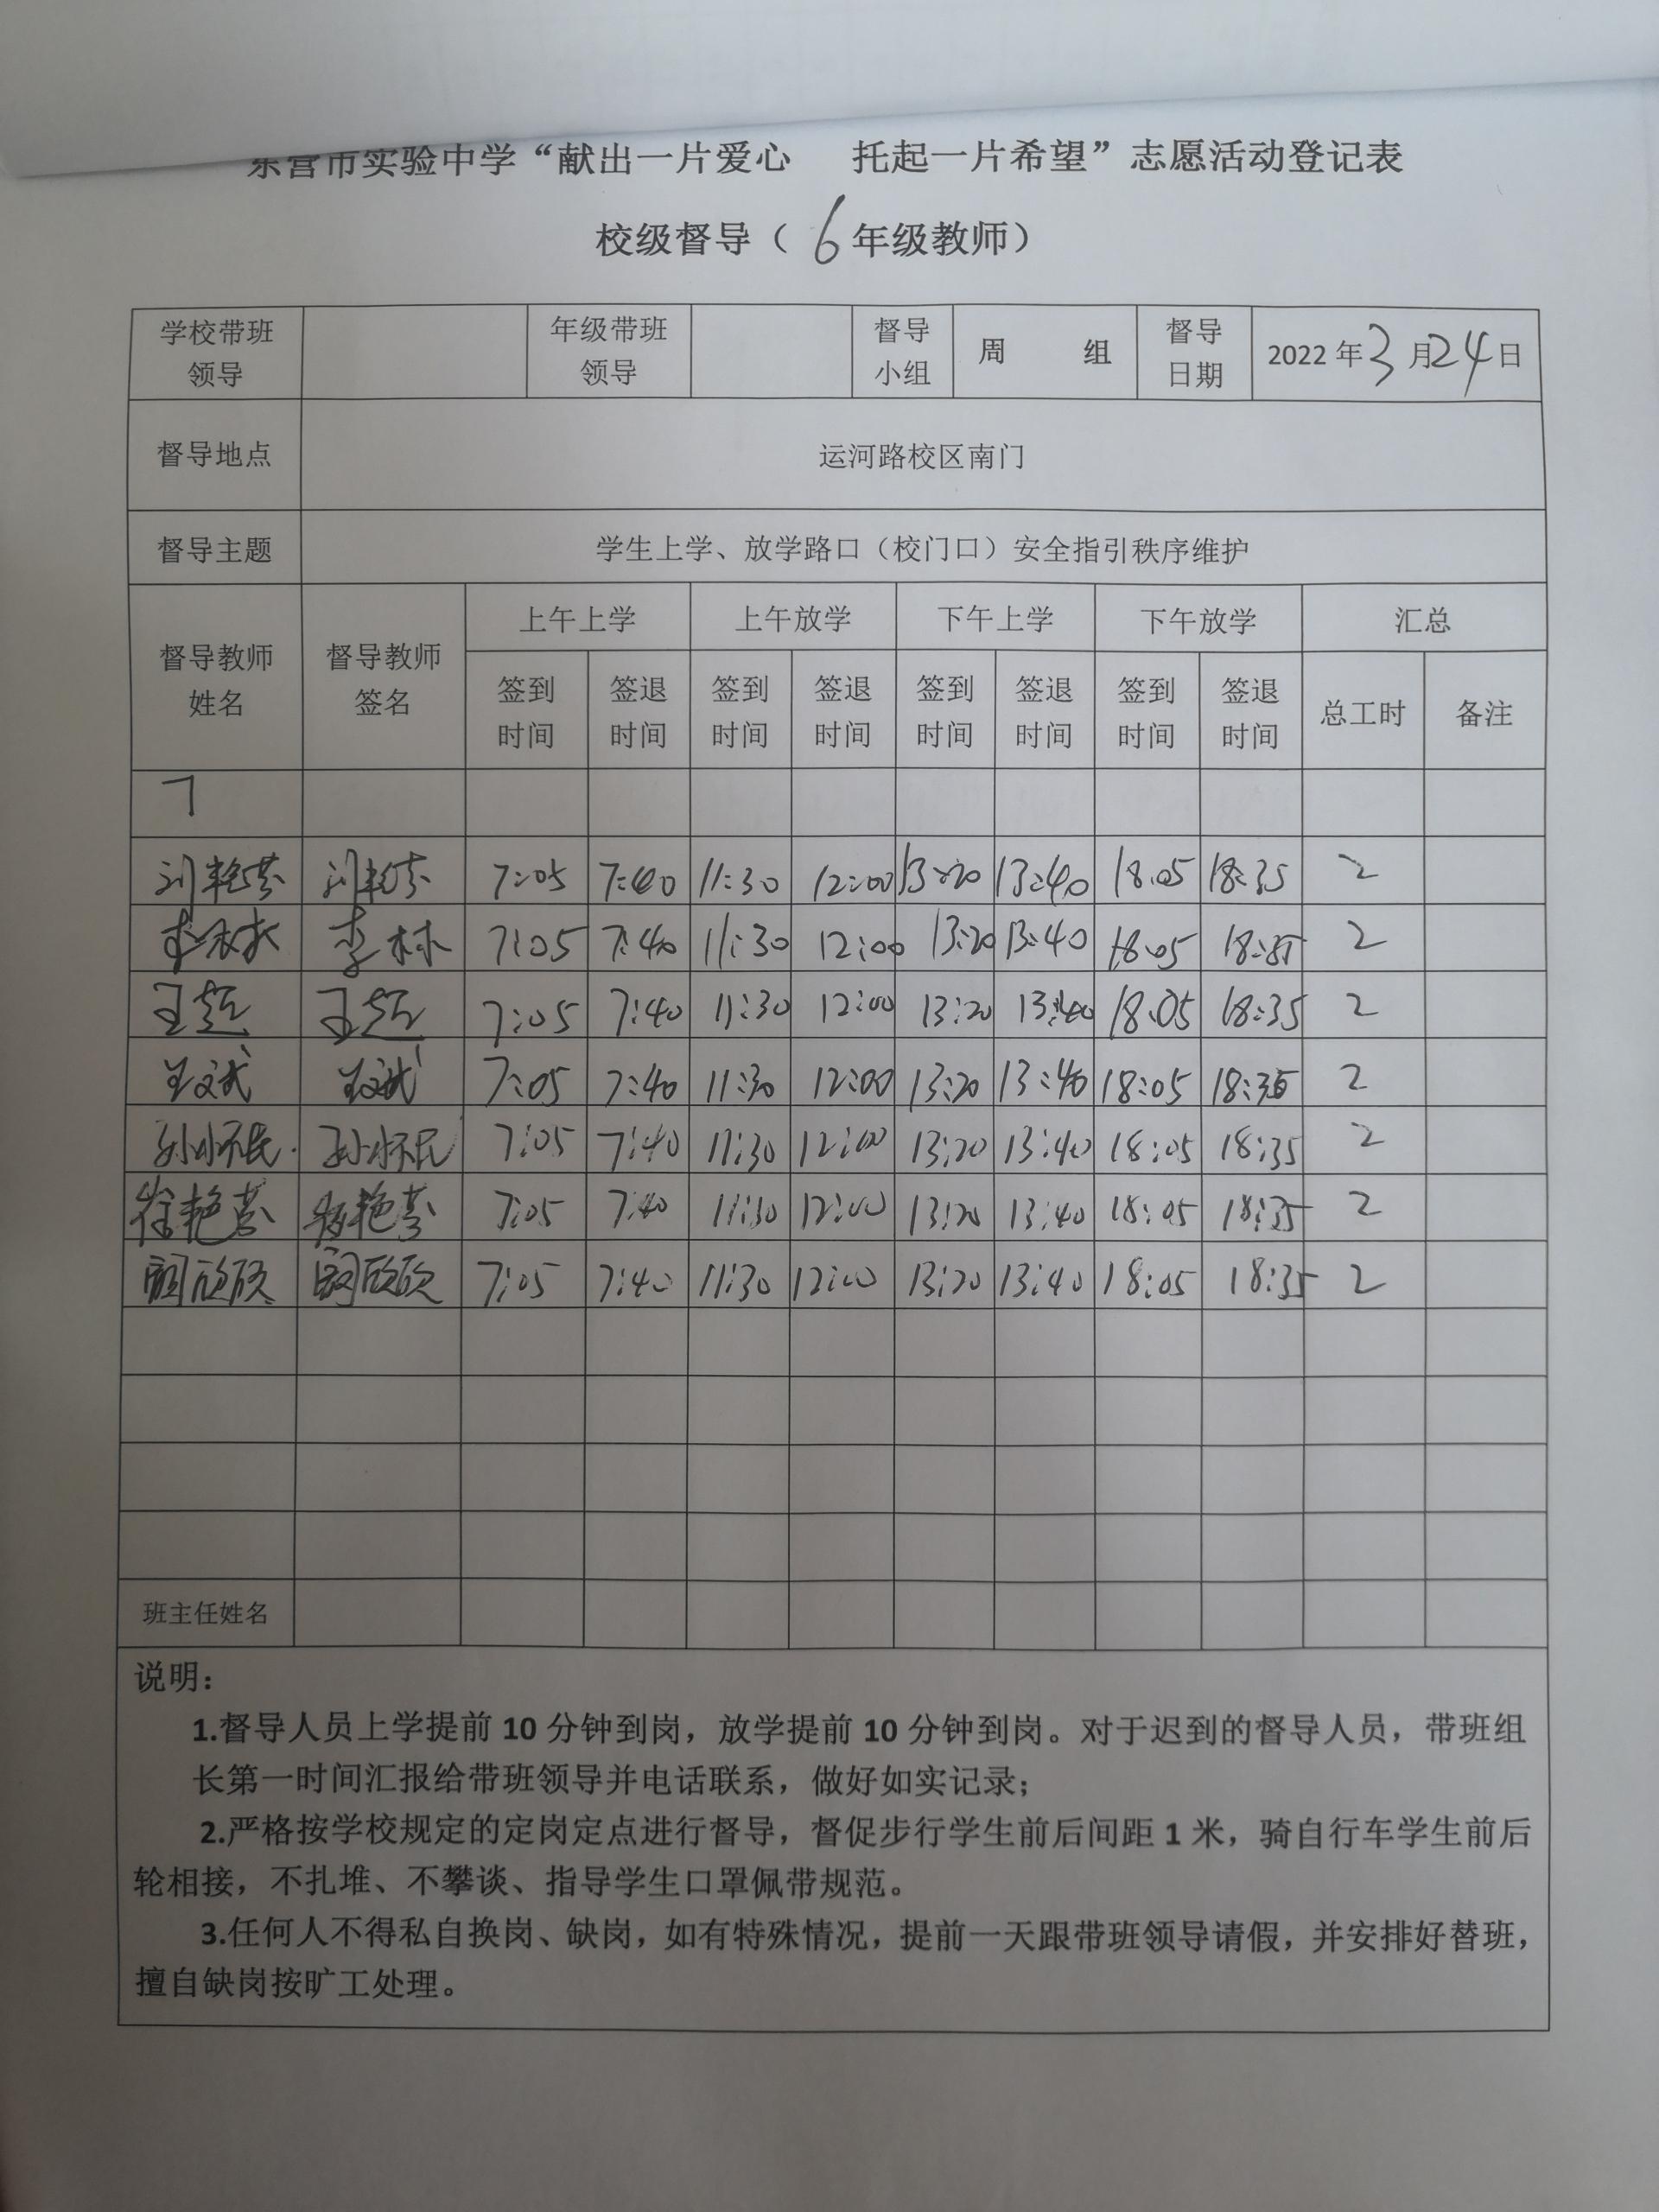 东营市实验中学“献出一片爱心 托起一片希望”志愿活动登记表
校级督导（6年级教师）
学校带班领导 年级带班领导 督导小组 周 组 督导日期 2022年3月24日
督导地点 运河路校区南门
督导主题 学生上学、放学路口（校门口）安全指引秩序维护
督导教师姓名 督导教师签名 上午上学 上午放学 下午上学 下午放学 汇总
签到时间 签退时间 签到时间 签退时间 签到时间 签退时间 签到时间 签退时间 总工时 备注
刘艳芬 刘艳芬 7:05 7:40 11:30 12:00 13:20 13:40 18:05 18:35 2
李林 李林 7:05 7:40 11:30 12:00 13:20 13:40 18:05 18:35 2
王超 王超 7:05 7:40 11:30 12:00 13:20 13:40 18:05 18:35 2
王文斌 王文斌 7:05 7:40 11:30 12:00 13:20 13:40 18:05 18:35 2
7:05 7:40 11:30 12:00 13:20 13:40 18:05 18:35 2
徐艳芬 徐艳芬 7:05 7:40 11:30 12:00 13:20 13:40 18:05 18:35 2
欣欣 欣欣 7:05 7:40 11:30 12:00 13:20 13:40 18:05 18:35 2
班主任姓名
说明：
1.督导人员上学提前10分钟到岗，放学提前10分钟到岗。对于迟到的督导人员，带班组
长第一时间汇报给带班领导并电话联系，做好如实记录；
2.严格按学校规定的定岗定点进行督导，督促步行学生前后间距1米，骑自行车学生前后
轮相接，不扎堆、不攀谈、指导学生口罩佩带规范。
3.任何人不得私自换岗、缺岗，如有特殊情况，提前一天跟带班领导请假，并安排好替班，
擅自缺岗按旷工处理。